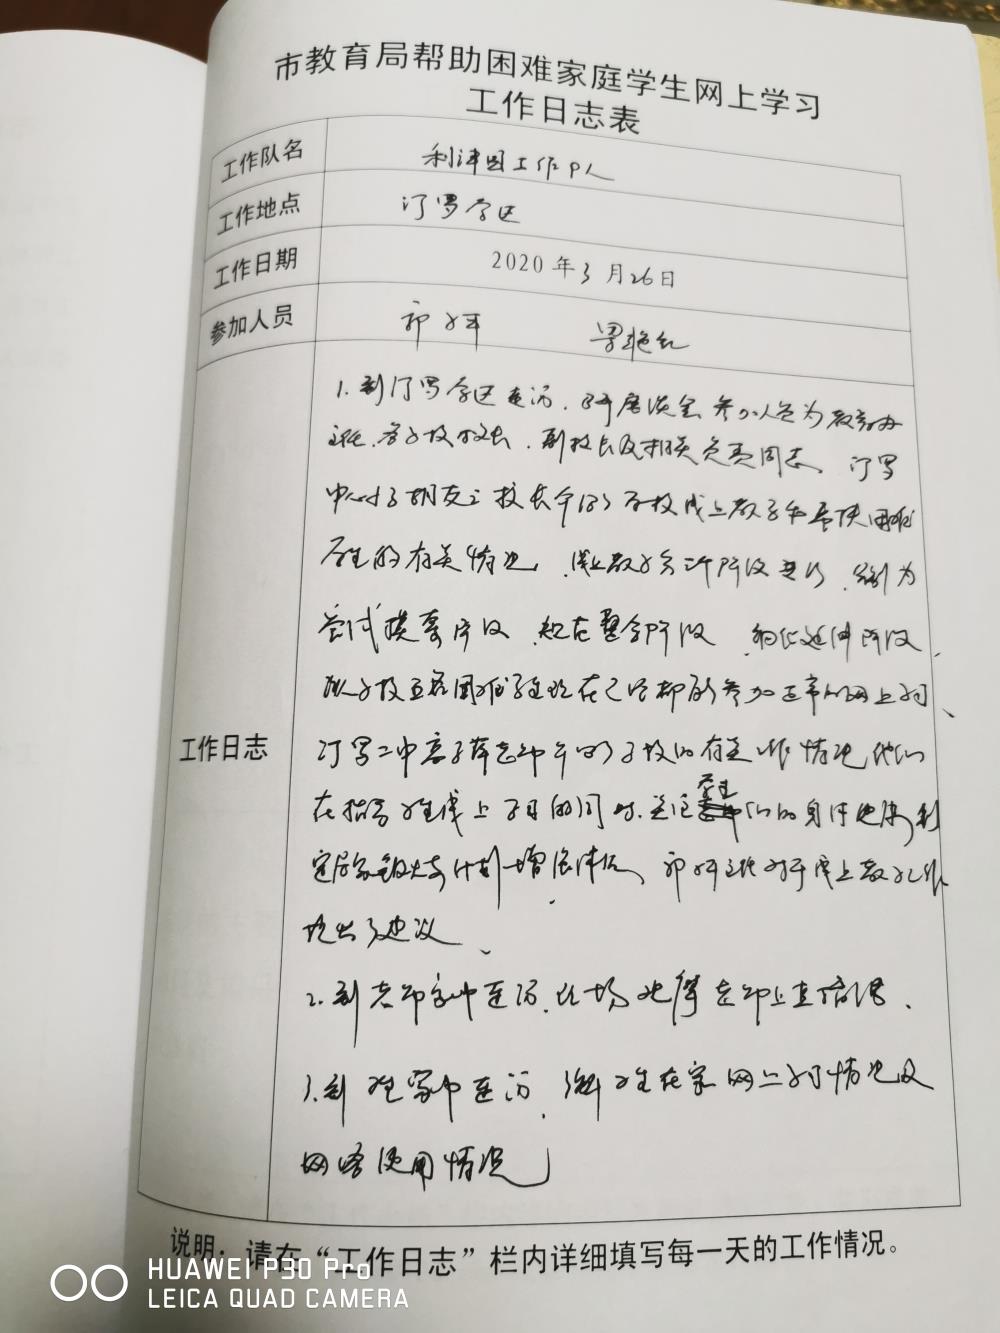 市教育局帮助困难家庭学生网上学习
工作日志表
工作队名
利津县工作队
工作地点
汀罗学区
工作日期
2020年3月26日
参加人员
工作日志
1.到汀罗学区走访.座谈会参加人员为教育办
主任、各学校校长、副校长及相关负责同志、汀罗
校长介绍了学校线上教学和帮扶困难
学生的有关情况,线上教学分三个阶段进行,分别为
尝试摸索阶段 整合阶段 延伸阶段、
学校五名困难学生现在已经都能参加正常的网上学习、
汀罗二中 介绍了学校的有关情况他们
在指导学生线上学习的同时,关注学生们的身体健康制
定居家锻炼计划增强体质、主任对于线上教学工作
提出了建议、
2.到老师家中走访.现场观摩老师上直播课、
3.到学生家中走访、了解学生在家网上学习情况及
网络使用情况
说明:请在“工作日志”栏内详细填写每一天的工作情况。
HUAWEI P30 Pro
LEICA QUAD CAMERA